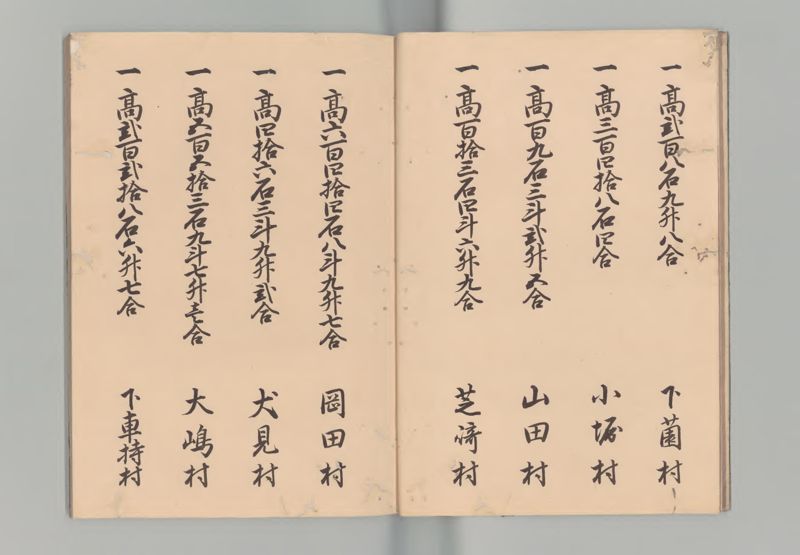 一高弐百八石九升八合 下薗村
一高三百四拾八石四合 小堀村
一高百九石三斗弐升五合 山田村
一高百拾三石四斗六升九合 芝﨑村
一高六百四拾四石八斗九升七合 岡田村
一高四拾六石三斗九升弐合 犬見村
一高五百五拾三石九斗七升壱合 大嶋村
一高弐百弐拾八石六升七合 下車持村